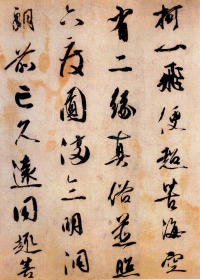 柯一飛便超苦海空
有二緣真俗並照
六度圓滿三明洞
朗前亡久遠同趣菩